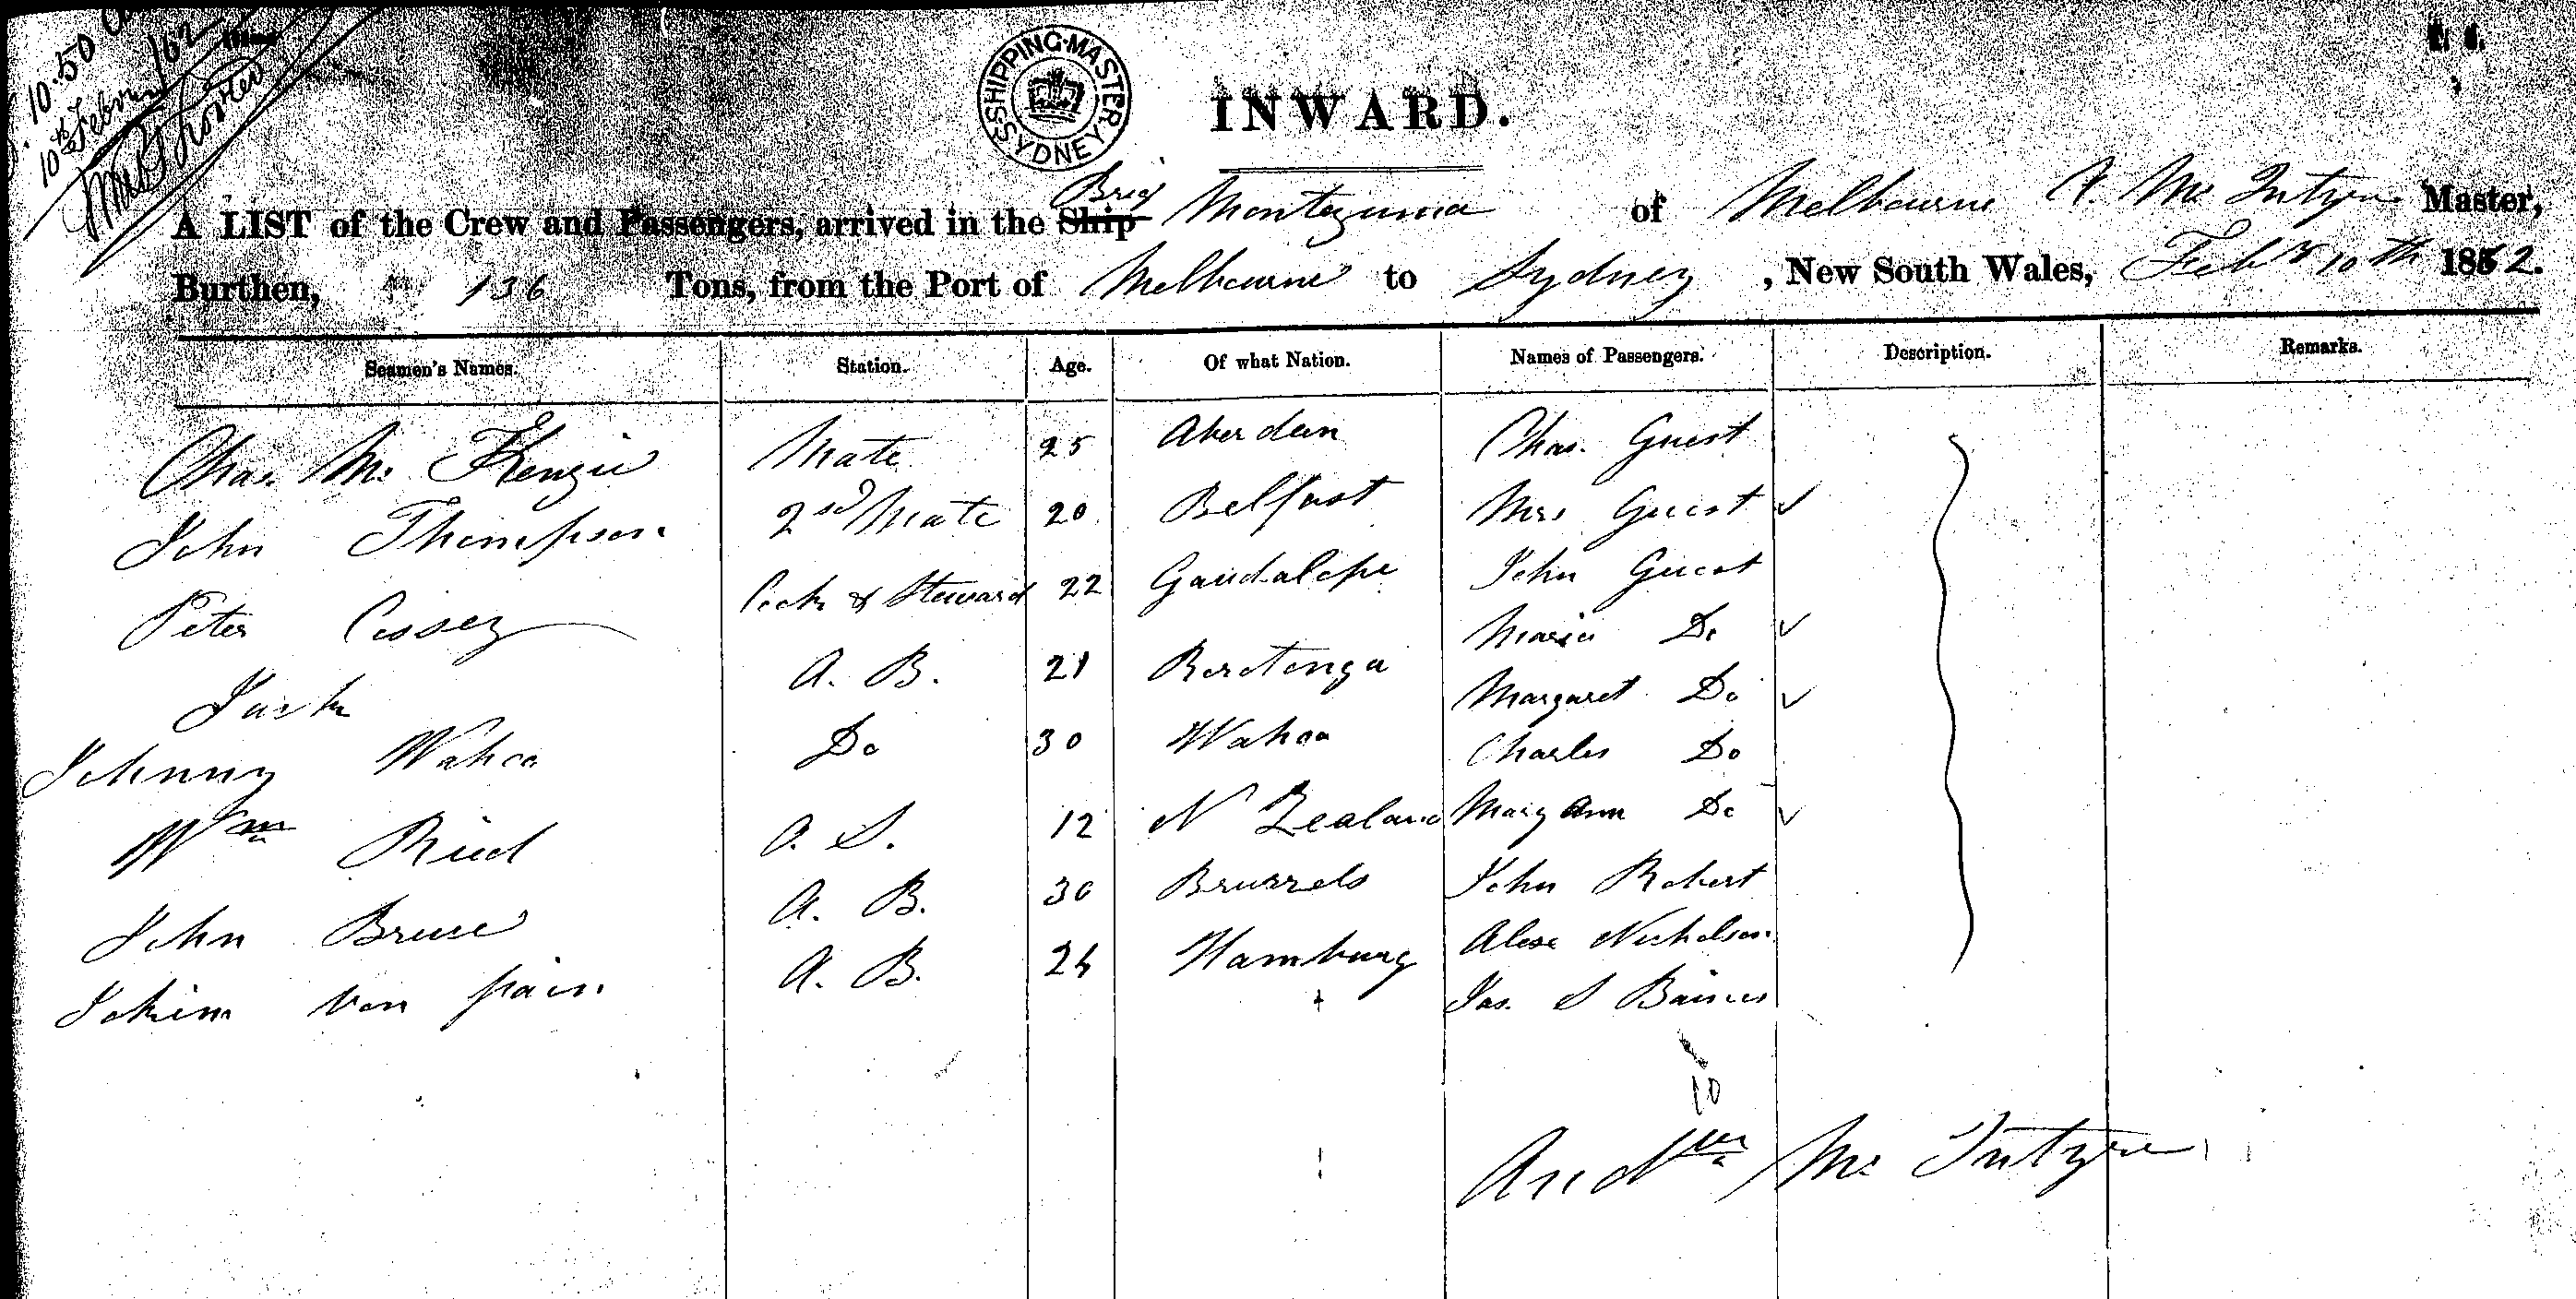 10.50
10th Febru /62
SHIPPING MASTER SYDNEY
INWARD.
A LIST of the Crew and Passengers, arrived in the Ship Brig Montezuma of Melbourne A. Mc Intyre Master,
Burthen, 136 Tons, from the Port of Melbourne to Sydney, New South Wales, Feby 10th 1862.
Seamen's Names. Station. Age. Of what Nation. Names of Passengers. Description. Remarks.
Chas. Mc Kenzie Mate 25 Aberdeen Chas. Guest
John Thompson 2nd Mate 20 Belfast Mrs Guest ✓
Peter Cook & Steward 22 Gaudalope John Guest
Jack A. B. 21 Rorotonga Maria Do ✓
Johnny Wahoo Do 30 Wahoo Margaret Do ✓
Wm Ried O. S. 12 N Zealand Charles Do
John Bruce A. B. 30 Brussels Mary Ann Do ✓
Jokim Von A. B. 24 Hamburg John Robert
Alexr Nicholson
Jas. S Baines
10
Andw Mc Intyre